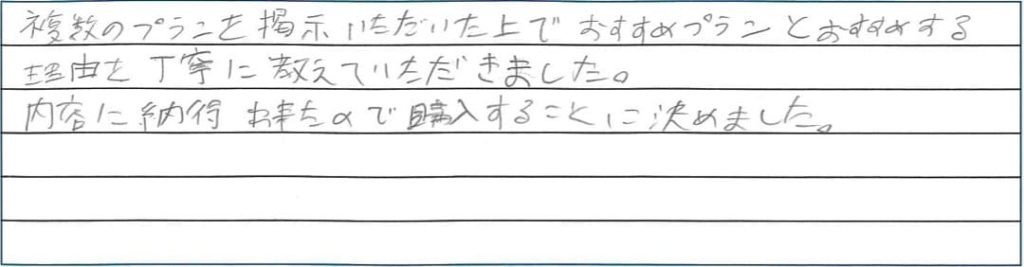 複数のプランを掲示いただいた上でおすすめプランとおすすめする
理由を丁寧に教えていただきました。
内容に納得出来たので購入することに決めました。